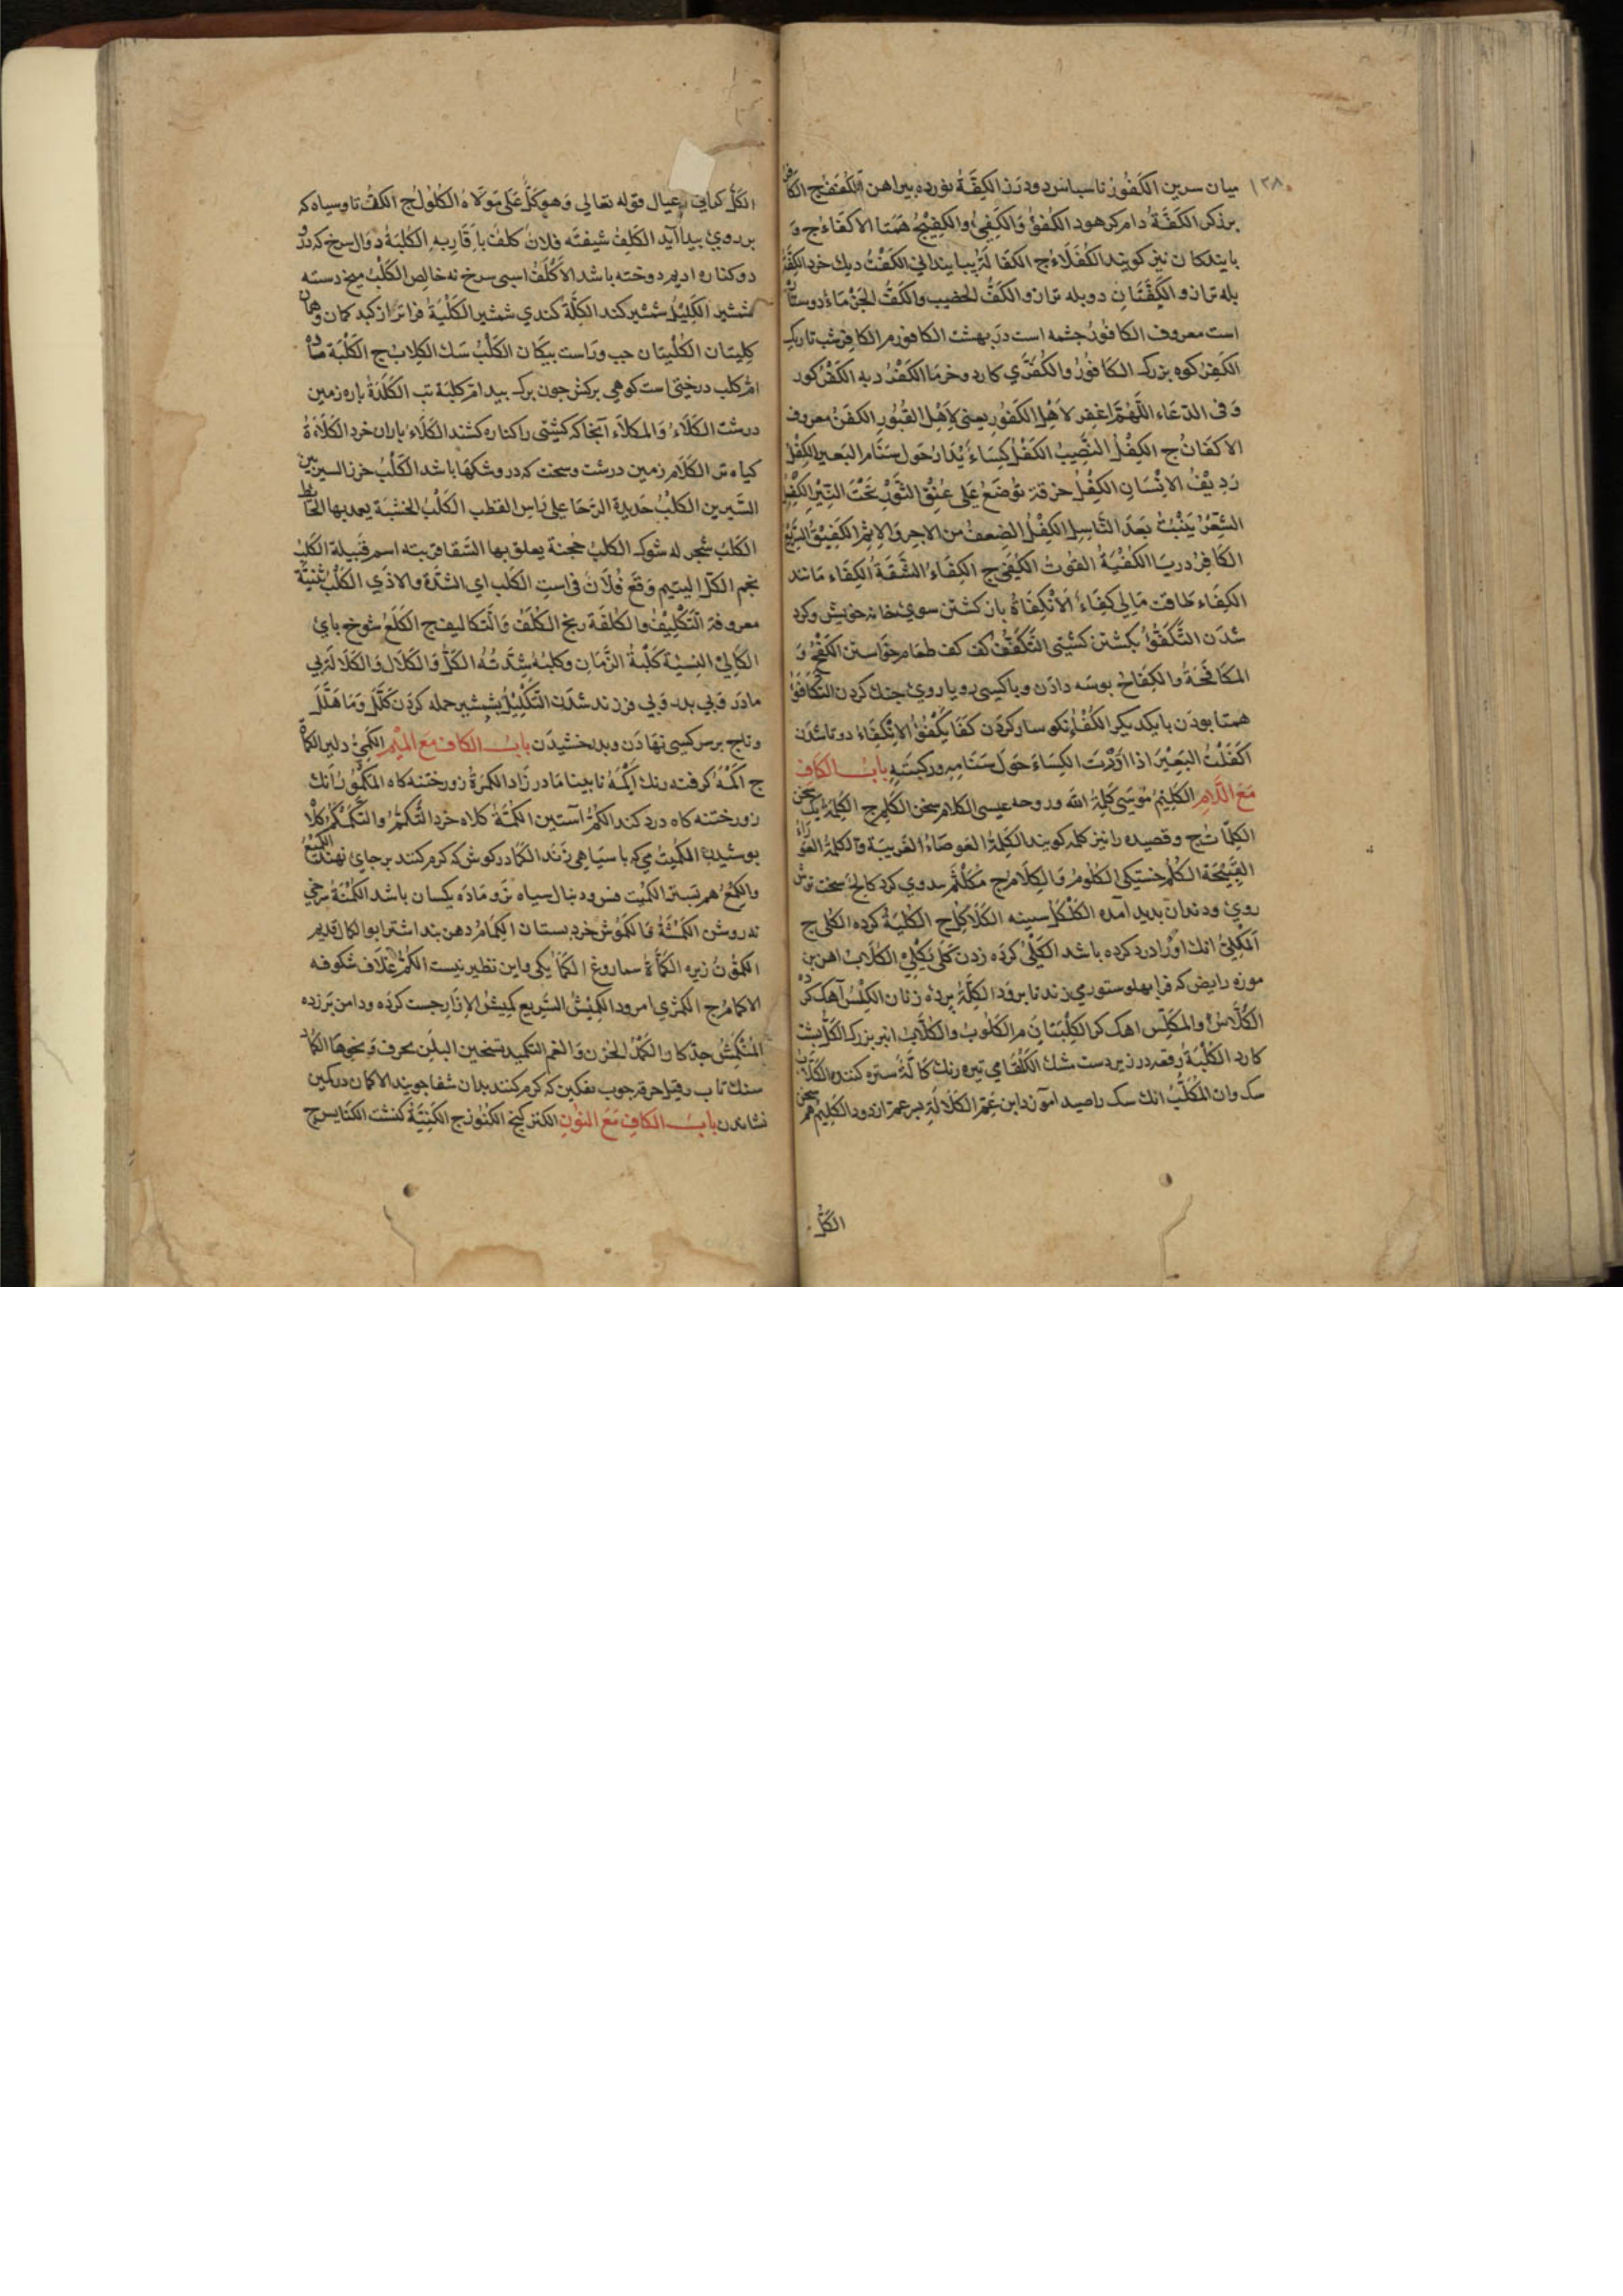 ١٣٨
ميان سرين الكَفُورُ ناسپاس ودرزن الكِفَّةُ نورده پيراهن الكُفَفُ ج
بزرگ الكَفَّةُ دام كرهود الكُفؤُ وَالكَفِيُ والكَفِيْئُ هَمتا الاكفَاءُ ج وَ
بايندكان نيز كويند الكُفَلَاءُ ج الكَفَالَةُ پايندانى الكَفْتُ ديك خرد الكِفَّةُ
پله ترازو الكِفَّتَانِ دوپله ترازو الكَفُّ الخضيب والكَفُّ الجَذْمَاءُ دوستاره
است معروف الكافُورُ چشمه است دربهشت الكافور م الكافِرُ شب تاريك
الكَفِرُ كوه بزرگ الكَافُورُ والكُفُرَّي كاردو خرما الكَفْرُ ديه الكَفْرُ كور
وَفى الدّعَاء اللّٰهُمَّ اغفِر لاَهْلِ الكَفُورِ يعنى لاَهْلِ القُبُورِ الكفَنُ معروف
الاكفَانُ ج الكِفْلُ النَّصِيبُ الكَفْلُ كِسَاءُ يُدَارُ حَول سَنَام البَعير الكِفْلُ
رَدِيْفُ الاِنْسَانِ الكِفْلُ خرقة تُوضَعُ عَلى عُنِقْ الثَورِ تَحْتَ النِّيرِ الكِفْلُ
الشَّعْرُ يَنْبُتُ بَعدَ النَّاسِلِ الكِفْلُ الضِعفُ من الاجر وَالاِثِم الكَفِيْتُ السَّرِيعُ
الكَافِرُ دريا الكُفْيَةُ القُوتُ الكُفَى ج الكِفَاءُ الشُّقَةُ الكِفَاء مانند
الكِفَاء طاقت مَالِي كِفَاءُ الاِنْكِفَاءُ باز كشتن سوى خانه خويش وكرد
شدَن التَّكَفُّؤُ بكشتن كشتى التَّكَفُّفُ كف كف طعام خواستن الكَفْحُ وَ
المكَافَحَةُ والكِفَاحُ بوسَه دادَن وباكسى روياروى جنك كردن التَّكَافُؤُ
همتا بودَن بايكديكر الكُفْأُ نكوسار كردَن كَفَا يَكْفَؤُ الاِنْكِفَاءُ دوتا شدَن
اكفَلْتُ البَعِيْرَ اذا ادَرْتَ الكِسَاءَ حَولَ سَنَامِهِ وركبتَه بابُ الكاف
مَعَ اللَّامِ الكَلِيْمُ مُوسَى كَلِمَةُ اللّٰه وروحه عيسى الكلام سخن الكَلِمُ ج الكَلِمَةُ يك سخن
الكَلِمَاتُ ج وقصيده را نيز كلمه كويند الكَلِمَةُ العَوصَاءُ الغَريبَة وَالكلِمةُ العَورَاءُ
القَبِيْحَة الكَلْمُ خستكى الكلُومُ وَالكِلَامُ ج مُكلْثَم روى كرد كَالِحُ سخت ترش
روى ودندان پديد آمده الكَلْكَلُ سينه الكَلَاكِلُ ج الكُلْيَةُ كرده الكُلى ج
المَكْلِىُّ انك اورا درد كرده باشد الكَلْىُ كرده زدن كَلَى يَكْلِى الكُلَّابُ اهن بن
موزه رايض كه فرا پهلو ستورى زند تا برود الكِلَّةُ پرده زنان الكِلْسُ آهك
الكَلَّاسُ والمكَلِّسُ اهك كر الكَلْبَتَانِ م الكَلُوبُ والكُلَّابُ انبر بزرگ الكَلُّ پشت
كارد الكُلْبَةُ رقعه درزير دست شك الكَلْفَا مى تيره رنك كَالَّةُ ستره كننده الكَلَّابُ
سك وان المُكَلِّبُ انك سك را صيد اموزد ابن عَمِّ الكَلَالَةِ پسر عم از دور الكَلِيْمُ هم سخن
الكَلُّ
الكَلُّ كرانى وعيال قوله تعالى وَهوَ كَلٌّ عَلَى مَولَاهُ الكُلُولُ ج الكلَفُ تاوسياه كه
برروى پيدا آيد الكَلِفُ شيفته فلانٌ كلفٌ باَقَارِبِهِ الكُلْبَةُ دوَال سرخ كه در
دوكناره اديم دوخته باشد الاَكْلَفُ اسبى سرخ نه خالص الكَلْبُ ميخ دسته
شمشير الكَلِيْلُ شمشير كند الكِلَّةُ كندى شمشير الكُلْيَةُ فراتر از كبد كمان وهما
كليتَان الكُلْيتَان چپ وراست پيكان الكَلْبُ سَك الكِلابُ ج الكَلْبَة ماده
امُّ كلب درختى است كوهى بركش چون برگ بيد امّ كلبَة تب الكَلَدَةُ پاره زمين
درشت الكَلَّاءُ وَالمكلَّاء آنجا كه كشتى را كناره كشند الكَلَاءُ باران خرد الكَلَاءَةُ
كياه تر الكَلَام زمين درشت وسخت كه درو شكهَا باشد الكَلْبُ خرز السير بين
السَّيرين الكلْبُ حَديدة الرّحَا على رَاس القطب الكَلْبُ الخشَبَة يعمد بها الحَائط
الكَلِبُ شجر له شوك الكَلبُ حُجنة يعلق بها السَّقا قربته اسم قبيلة الكَلبُ
نجم الكَلُّ اليتيم وَقَعَ فُلَانٌ فى است الكَلب اى الشدَّة والاذَى الكَلْبُ ثنيَّة
معروفة التَكْلِيْفُ والكُلفَة رنج الكُلَفُ وَالتَّكاليف ج الكَلَعُ شوخ پاى
الكَالِئُ النسِيَة كَلْبَةُ الزَّمَانِ وكلبُه شِدَّتُهُ الكَلُّ وَالكَلَال وَالكَلَالَةُ بى
مادَر وَبى پدر وَبى فرزند شدَن التَّكْلِيْلُ بشمشير حمله كردَن كَلَّلَ وَمَا هَلَّلَ
وتاج برسر كسى نهَادَن وبدرخشيدَن بابُ الكاف مَعَ المِيْم الكَمِىُّ دلير الكُمَاةُ
ج اكمَهُ كرفته رنك اكْمَهُ نابينا مادر زَاد الكَمَرَةُ زورختنه كاه المَكمُورُ انك
زورختنه كاه دردكند الكُمُّ آستين الكُمَّةُ كلاه خرد التَّكمُّمُ والتَّكَمْكُمُ كلاه
پوشيدن الكُمَيْتُ مى كه باسيَاهى زَند الكمَاد ركوش كه كرم كنند برجاى نهند الكِمْعُ
والكَمِيعُ هم بستر الكُمَيْت فس ودنبال سياه نر ومَادَه يكسان باشد الكُمْتَةُ سرخى
نه روشن الكَمْشَةُ وَالكَمُوشُ خرد پستان الكِمَامُ دهن بند اشتر ابو الكمال قديم
الكَمُّونُ زيره الكَمْأَةُ سماروغ الكَمْأُ يكى واين نظير نيست الكِمُّ غلاف شكوفه
الاكمامُ ج الكمَّثرى امرود الكَمِيْشُ السَّرِيع كَمِيشُ الاِزَارِ چست كرده ودامن برزده
المُنْكَمِشُ جدّ كار الكَمَدُ الحزن وَالغم التكميد تسخين البدَن بحرف وَنحوهَا الكمَاد
سنك تاب وقيل خرقه چوب نفكين كه كرم كنند بدان شفا جويند الاكمان دركمين
نشاندن بابُ الكافِ مَعَ النُونِ الكنز كنج الكنُوزُ ج الكَنِيَّةُ كنشت الكنَايس ج